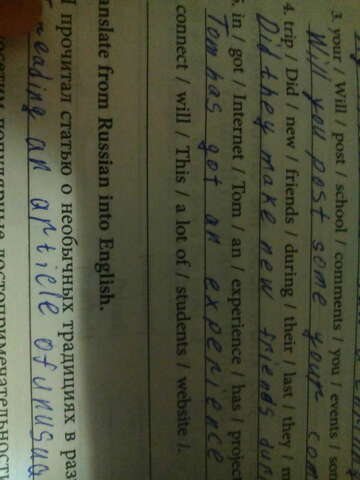 3. your / Will / post / school / comments / you / events / som
Will you post some your com
4. trip / Did / new / friends / during / their / last / they / m
Did they make new friends dur
5. in / got / Internet / Tom / an / experience / has / project
Tom has got an experience
connect / will / This / a lot of / students / website /.
anslate from Russian into English.
I прочитал статью о необычных традициях в раз
reading an article of unusua
осетим популярные достопримечательности